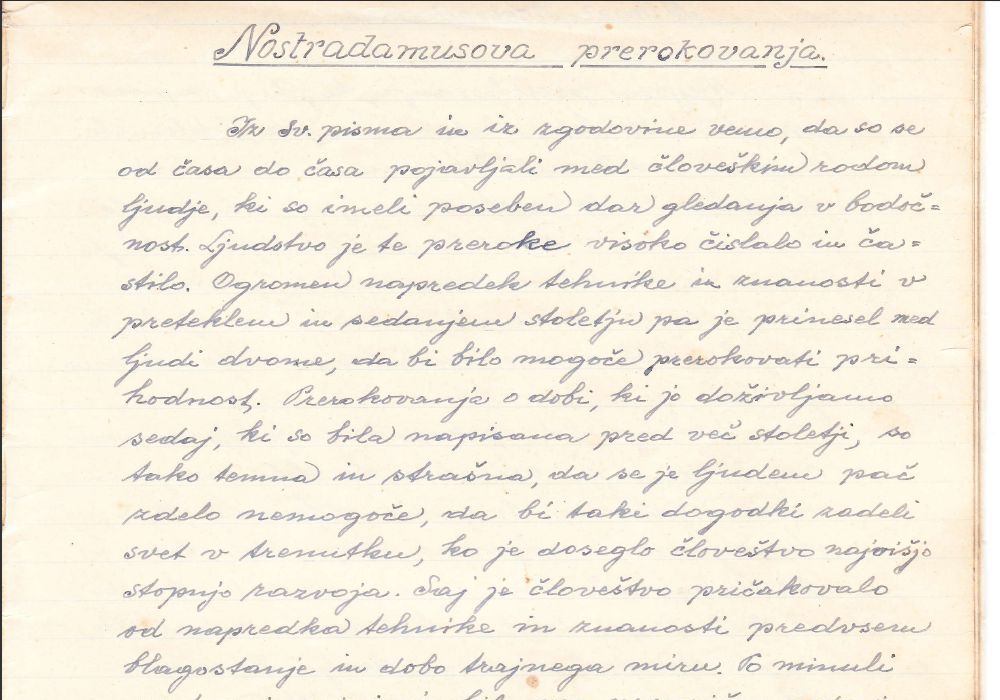 Nostradamusova prerokovanja.
Iz Sv. pisma in iz zgodovine vemo, da so se
od časa do časa pojavljali med človeškim rodom
ljudje, ki so imeli poseben dar gledanja v bodoč=
nost. Ljudstvo je te preroke visoko čislalo in ča=
stilo. Ogromen napredek tehnike in znanosti v
preteklem in sedanjem stoletju pa je prinesel med
ljudi dvome, da bi bilo mogoče prerokovati pri=
hodnost. Prerokovanja o dobi, ki jo doživljamo
sedaj, ki so bila napisana pred več stoletji, so
tako temna in strašna, da se je ljudem pač
zdelo nemogoče, da bi taki dogodki zadeli
svet v trenutku, ko je doseglo človeštvo najvišjo
stopnjo razvoja. Saj je človeštvo pričakovalo
od napredka tehnike in znanosti predvsem
blagostanje in dobo trajnega miru. Po minuli